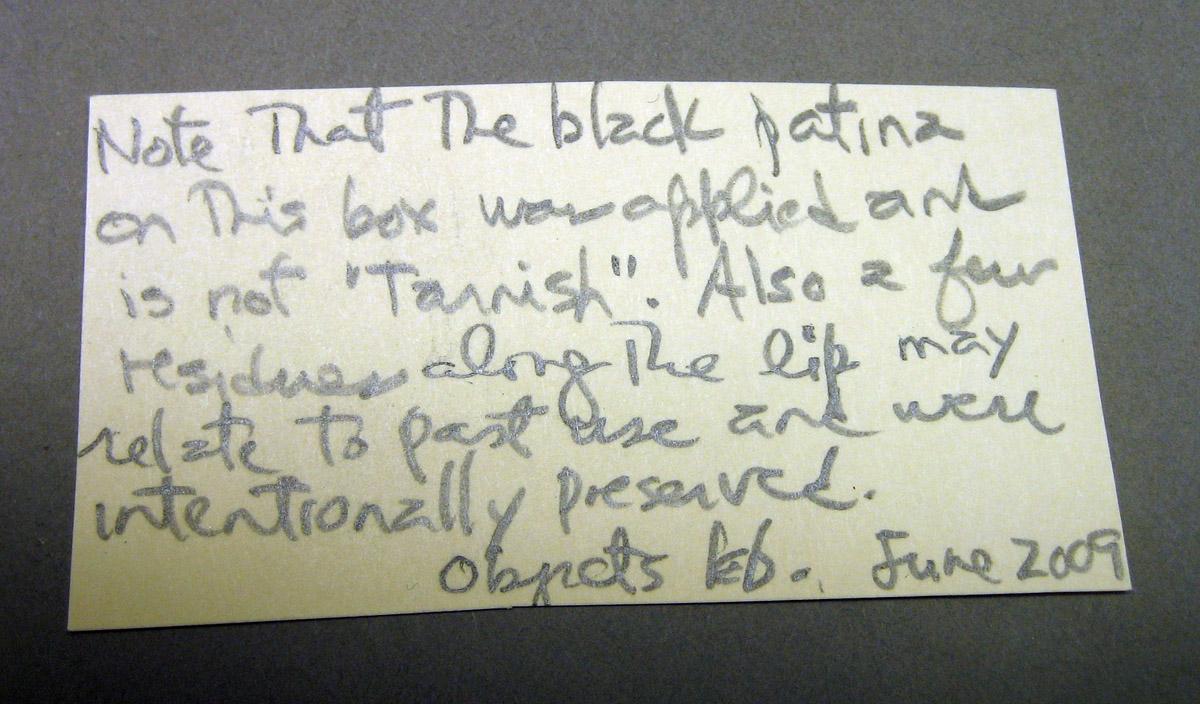 Note That The black patina
on This box was applied and
is not "Tarnish". Also a few
residues along The lip may
relate to past use and were
intentionally preserved.
Objects Lab. June 2009